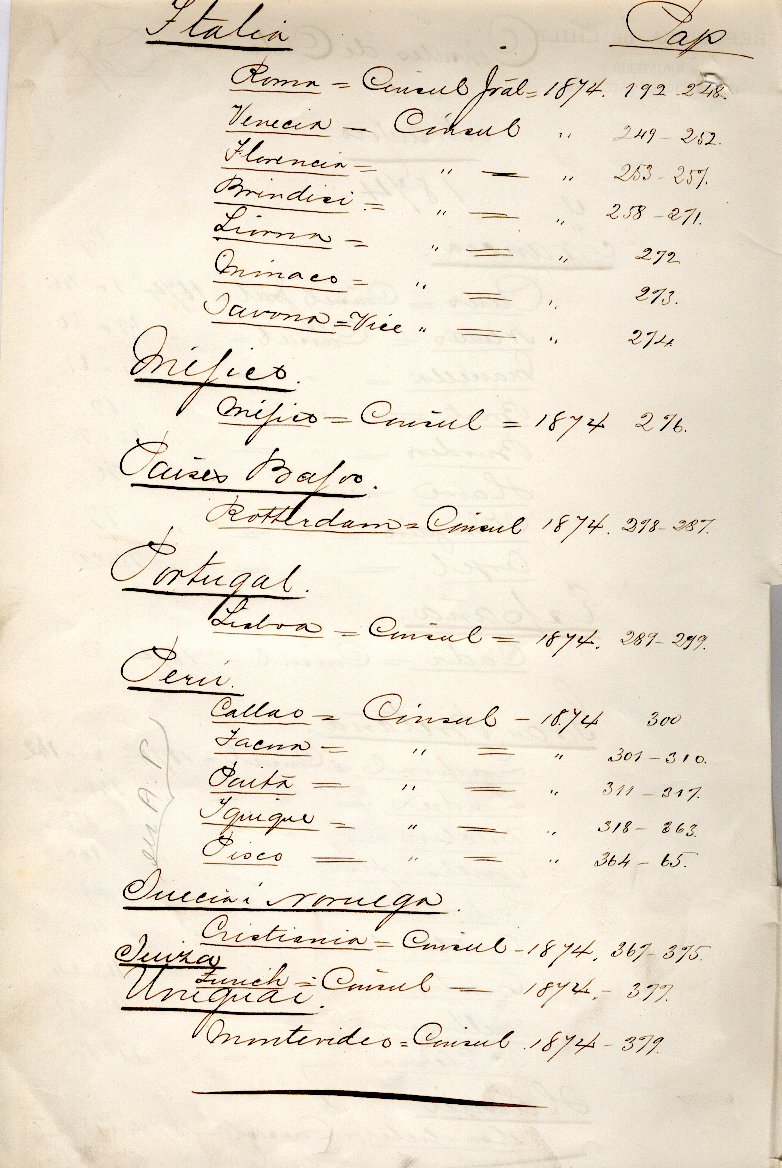 Italia Pap
Roma = Cónsul Jrál = 1874. 192-248.
Venecia — Cónsul " 249-252.
Florencia = " — " 253-257.
Brindisi = " = " 258-271.
Liorna = " = " 272
Mónaco = " = " 273.
Savona = Vice " = " 274
Méjico.
Méjico = Cónsul = 1874 276.
Paises Bajos.
Rotterdam = Cónsul 1874. 278-287.
Portugal.
Lisboa = Cónsul = 1874. 289-299.
Perú.
Callao = Cónsul - 1874 300
Tacna = " = " 301-310.
Paita = " = " 311-317.
Iquique = " = " 318-363.
Pisco = " = " 364-65.
Suecia i Noruega.
Cristiania = Cónsul - 1874. 367-375.
Suiza
Zurich = Cónsul — 1874. - 377.
Uruguai.
Montevideo = Cónsul. 1874 - 379.